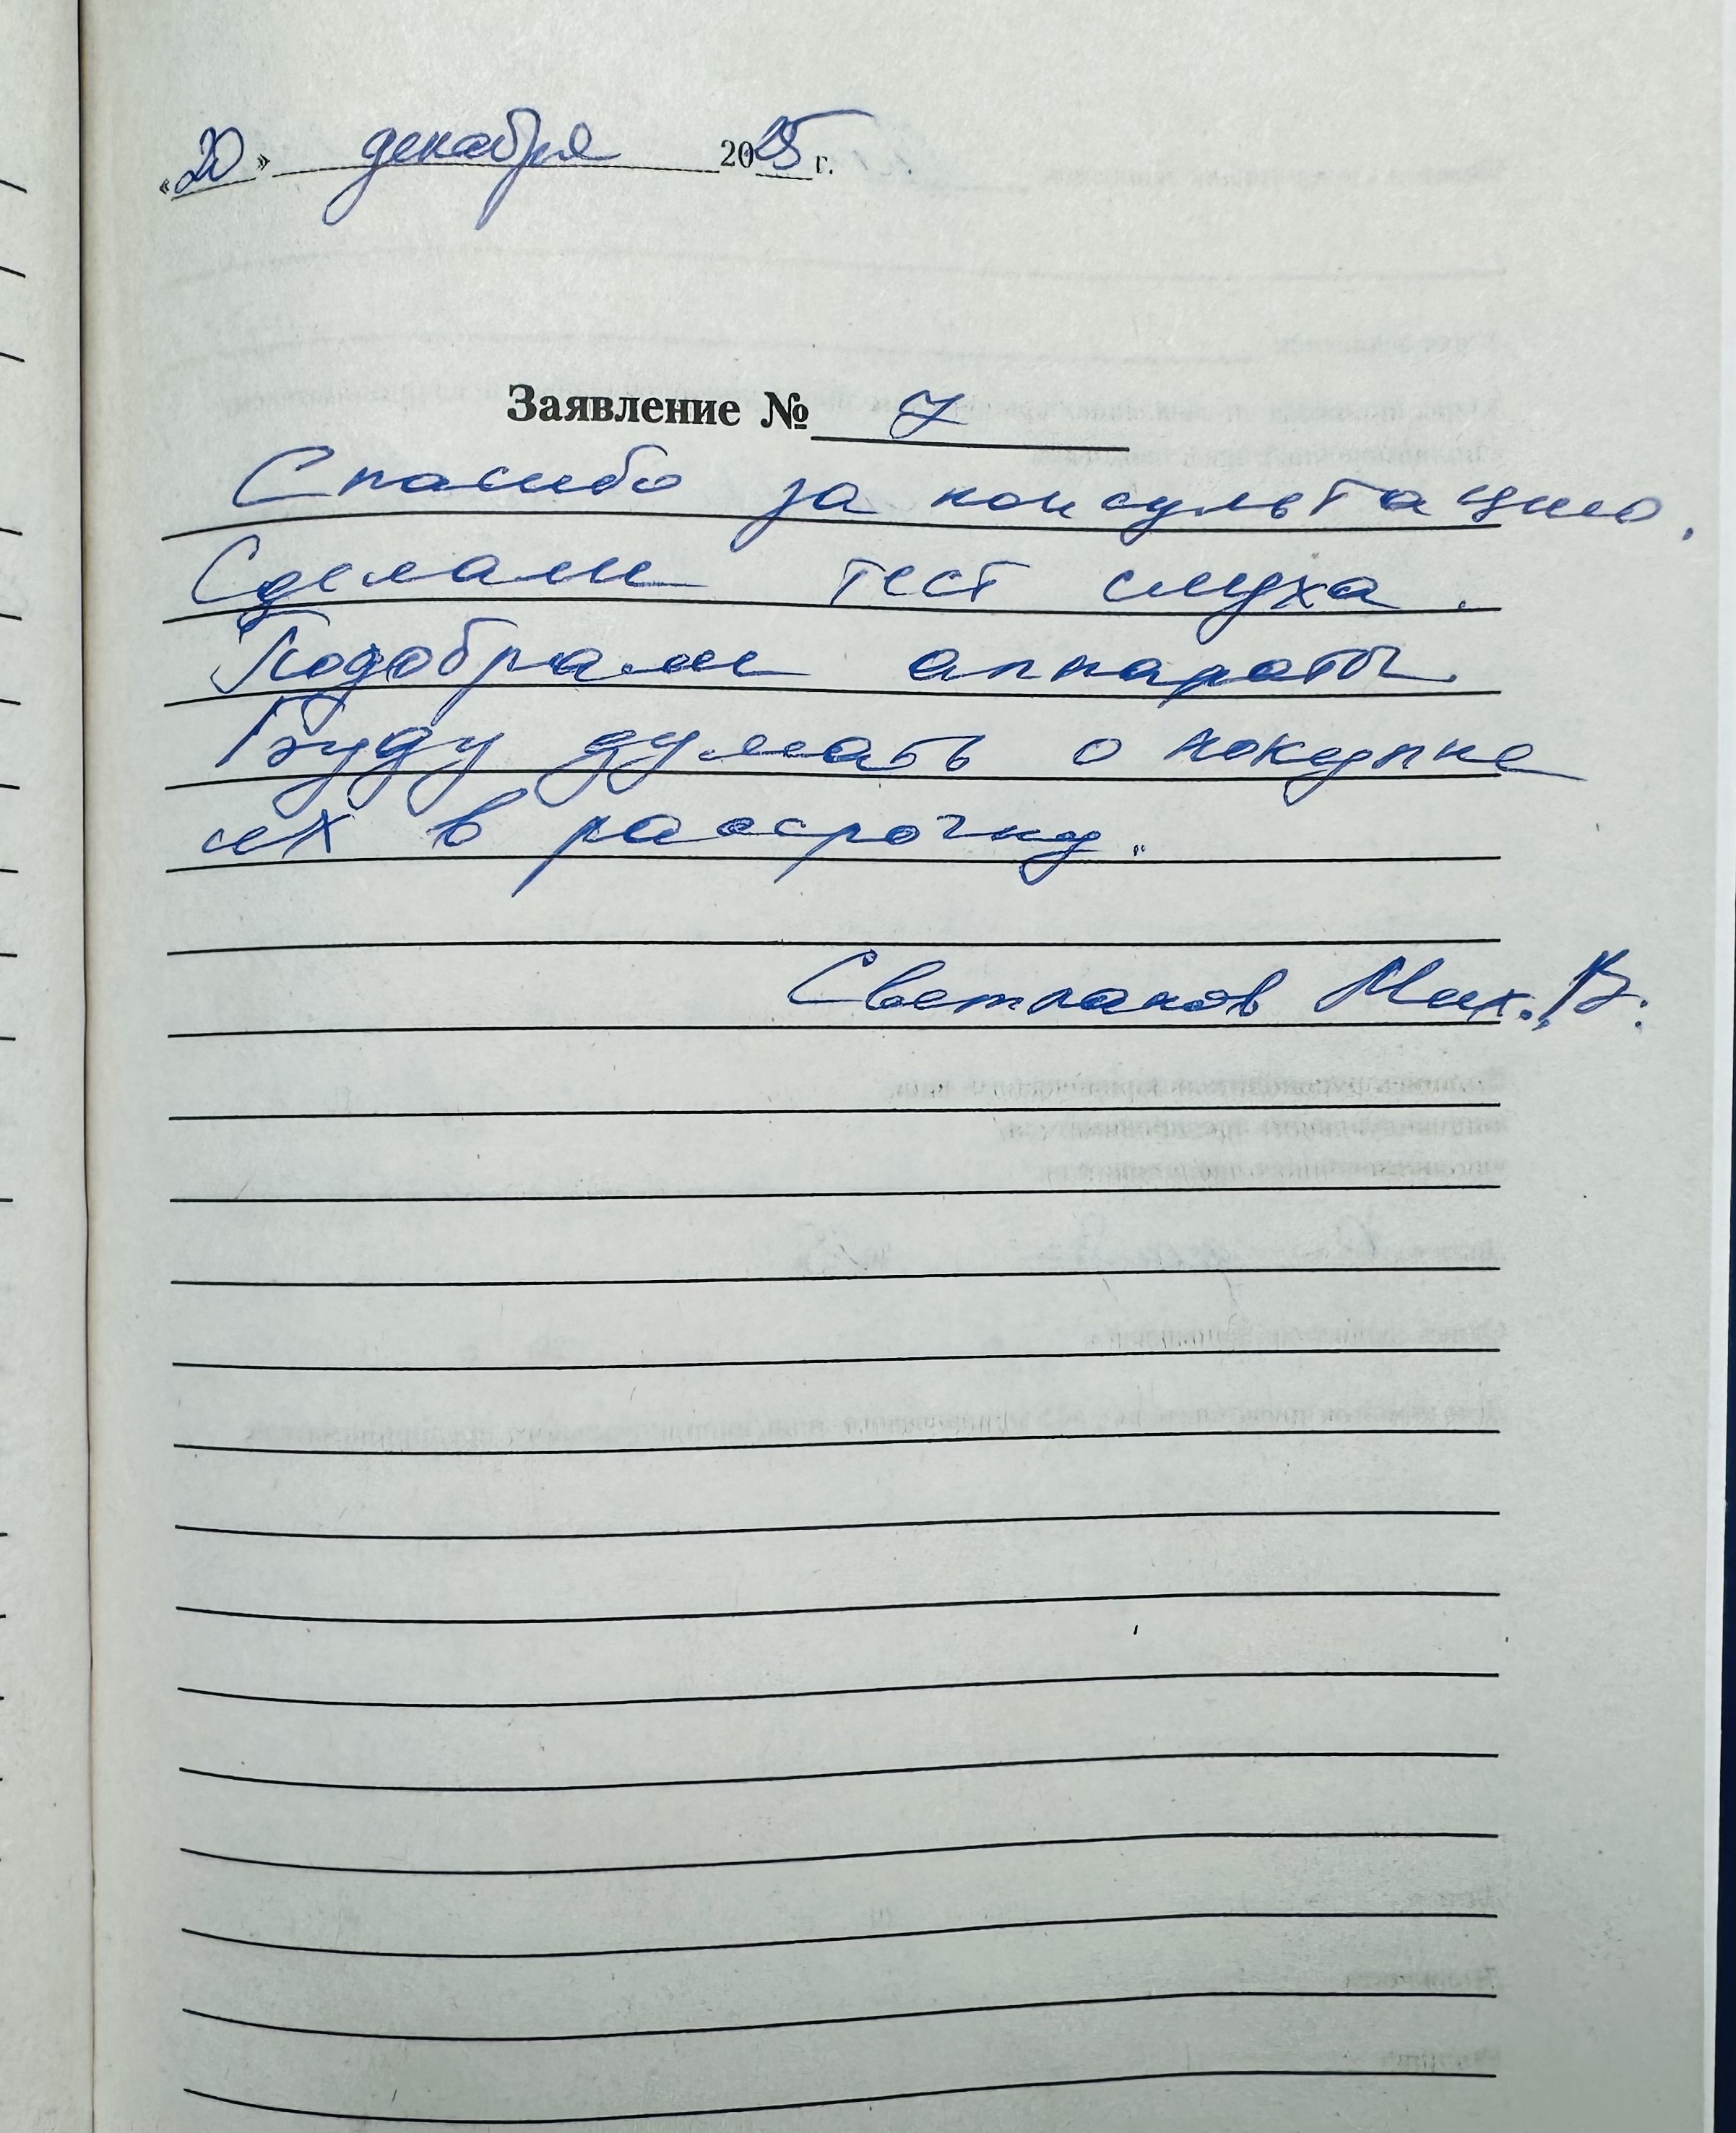 «20» декабря 2025 г.
Заявление № 7
Спасибо за консультацию.
Сделали тест слуха.
Подобрали аппараты.
Буду думать о покупке
их в рассрочку.
Светлаков Мих. В.